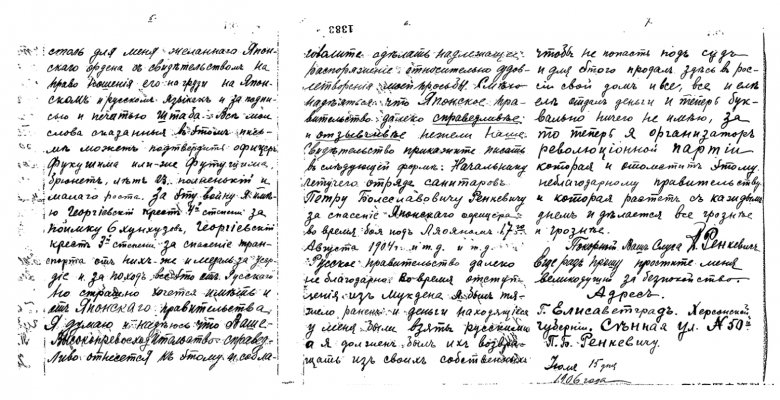 5.
столь для меня желаннаго Япон-
скаго ордена съ свидѣтельствомъ на
право ношенія его на груди на Япон-
скомъ и русскомъ языкахъ и за подпи-
сью и печатью Штаба. Всѣ мои
слова сказанныя въ этомъ пись-
мѣ можетъ подтвердить офицеръ
Фукушима или-же Футушима
брюнетъ, лѣтъ полненькій и
малаго роста. За эту войну я имѣ-
ю Георгіевскій крестъ 4й степени за
поимку 6 хунхузовъ, Георгіевскій
крестъ 3й степени за спасеніе тран-
спорта отъ нихъ-же и медаль за усер-
діе и за походъ все это отъ Русскаго
Но страшно хочется имѣть и
отъ Японскаго правительства.
Я думаю и надѣюсь что Ваше-
Высокопревосходительство справед-
ливо отнесется къ этому и собла-
1383
6.
говолите сдѣлать надлежащее
распоряженіе относительно удов-
летворенія моей просьбы. Смѣю
надѣяться что Японское пра-
вительство далеко справедливѣе
и отзывчивѣе нежели наше.
Свидѣтельство прикажите писать
въ слѣдующей формѣ: Начальнику
летучаго отряда санитаровъ
Петру Болеславовичу Ренкевичу
за спасеніе Японскаго офицера
во время боя подъ Ляояномъ 17го
Августа 1904г. и т.д. и т.д.
Русское правительство далеко
не благодарно. Во время отступ-
ленія изъ Мукдена я былъ тя-
жело раненъ и деньги находящіеся
у меня были взяты русскими
а я долженъ былъ ихъ возвра-
щать изъ своихъ собственныхъ
7.
чтобы не попасть подъ судъ
и для этого продалъ здѣсь въ рос-
сіи свой домъ и все, все и
отдалъ деньги и теперь бук-
вально ничего не имѣю, за
то теперь я организаторъ
революціонной партіи
которая и отомститъ этому
неблагодарному правительству
и которая растетъ съ каждымъ
днемъ и дѣлается все грознѣе
и грознѣе.
Покорный Вашъ Слуга П. Ренкевичъ
Еще разъ прошу простите меня
великодушно за безпокойство.
Адресъ
Г. Елисаветградъ. Херсонской
губерніи. Сѣнная ул. N 50й
П. Б. Ренкевичу.
Іюля 15 дня
1906 года